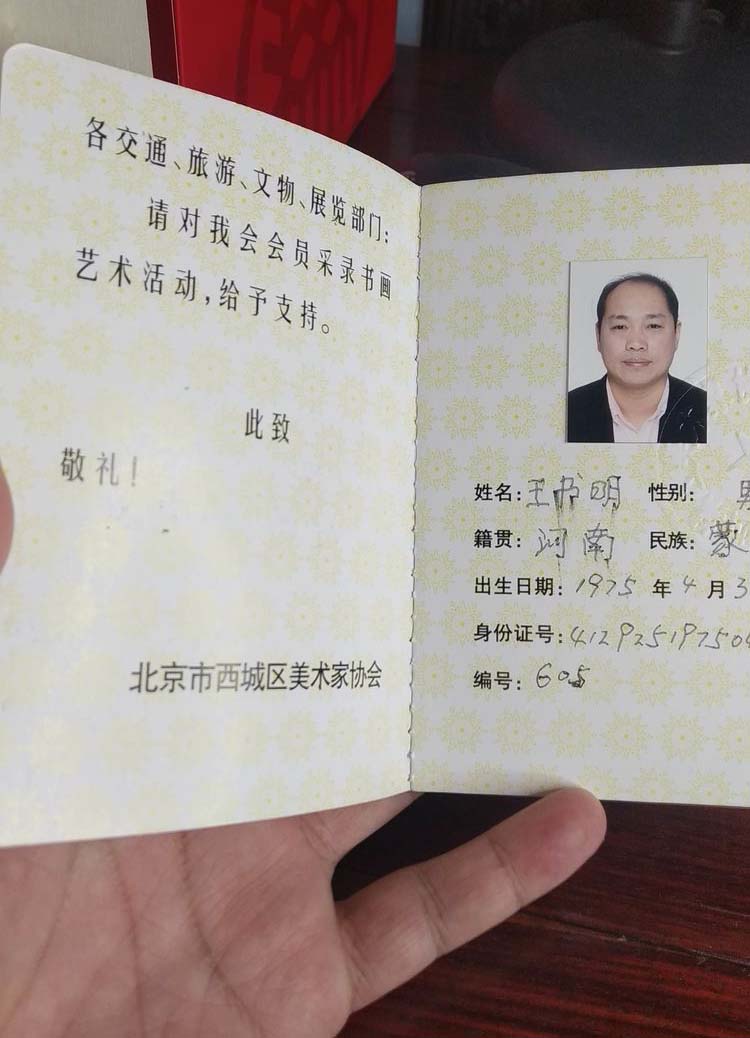 各交通、旅游、文物、展览部门：
请对我会会员采录书画
艺术活动，给予支持。
此致
敬礼！
北京市西城区美术家协会
姓名：王书明 性别：男
籍贯：河南 民族：蒙
出生日期：1975 年 4 月 3
身份证号：41292519750
编号：605